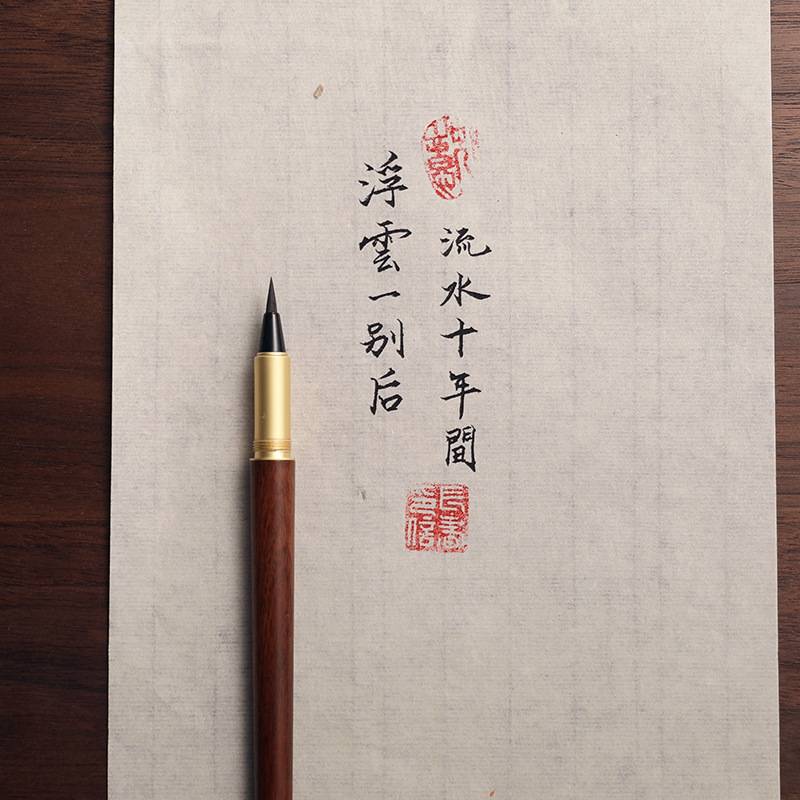 浮雲一别后
流水十年間